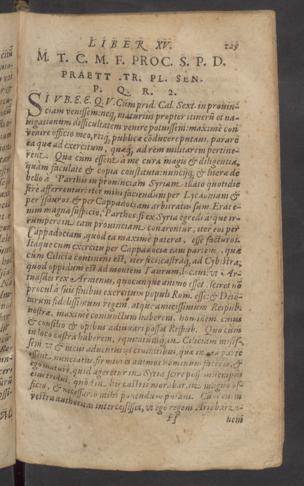 LIBER XV.
M. T. C. M. F. PROC. S. P. D.
PRAETT .TR. PL. SEN.
P. Q. R. 2.
SI V. B. E. E. Q. V. Cum prid. Cal. Sext. in provin
ciam venissem: neq, maturius propter itinerū et na
vigationum difficultatem venire potuissem: maximè con
venire officio meo, reiq; publicæ cōducere putavi, parare
ea quæ ad exercitum, quæq, ad rem militarem pertine
rent. Quæ cum essent à me cura magis & diligentia,
quàm facultate & copia constituta: nunciiq, & literæ de
bello à Parthis in provinciam Syriam illato quotidie
ferè afferrentur: iter mihi faciendum per Lycaoniam &
per Isauros & per Cappadociam arbitratus sum. Erat e=
nim magna suspicio, Parthos, si ex Syria egredi atque ir=
rumpere in meam provinciam conarentur, iter eos per
Cappadociam, quòd ea maximè pateret, esse facturos.
Itaque cum exercitu per Cappadociæ eam partem, quæ
cum Cilicia continens est, iter feci: castraq, ad Cybistra,
quod oppidum est ad montem Taurum, locavi: vt Ar=
tuasdes rex Armenius, quocunque animo esset, sciret nō
procul à suis finibus exercitum populi Rom. esse: & Deiō=
tarum fidelissimum regem, atque amicissimum Reipub.
nostræ, maximè coniunctum haberem:
& consilio & opibus adiuvari posset Respub. Quo cùm
in loco castra haberem, equitatumq, in Ciliciam misis=
sem
essent
quid ageretur in Syria scire
magno of=
ficio, & necessario mihi ponendum putavi. Cùm enim
vestra authoritas intercessisset, vt ego regem Ariobarza=
Ff nem